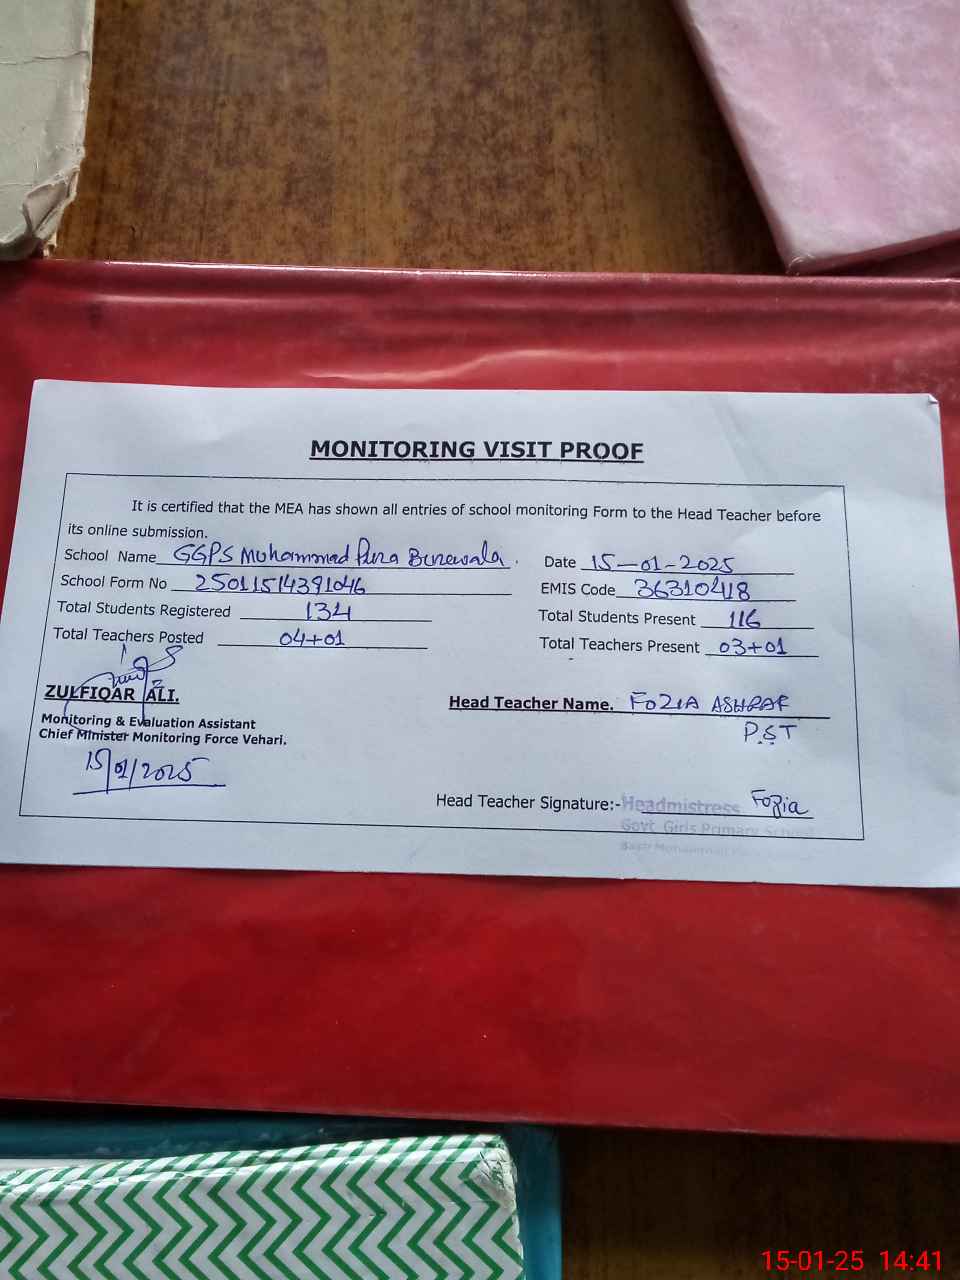 MONITORING VISIT PROOF
It is certified that the MEA has shown all entries of school monitoring Form to the Head Teacher before
its online submission.
School Name GGPS Muhammad Pura Binewala. Date 15-01-2025
School Form No 25011514391046 EMIS Code 36310418
Total Students Registered 134 Total Students Present 116
Total Teachers Posted 04+01 Total Teachers Present 03+01
ZULFIQAR ALI. Head Teacher Name. FOZIA ASHRAF
Monitoring & Evaluation Assistant PST
Chief Minister Monitoring Force Vehari.
15/01/2025
Head Teacher Signature:- Headmistress Fozia
Govt. Girls Primary School
15-01-25 14:41